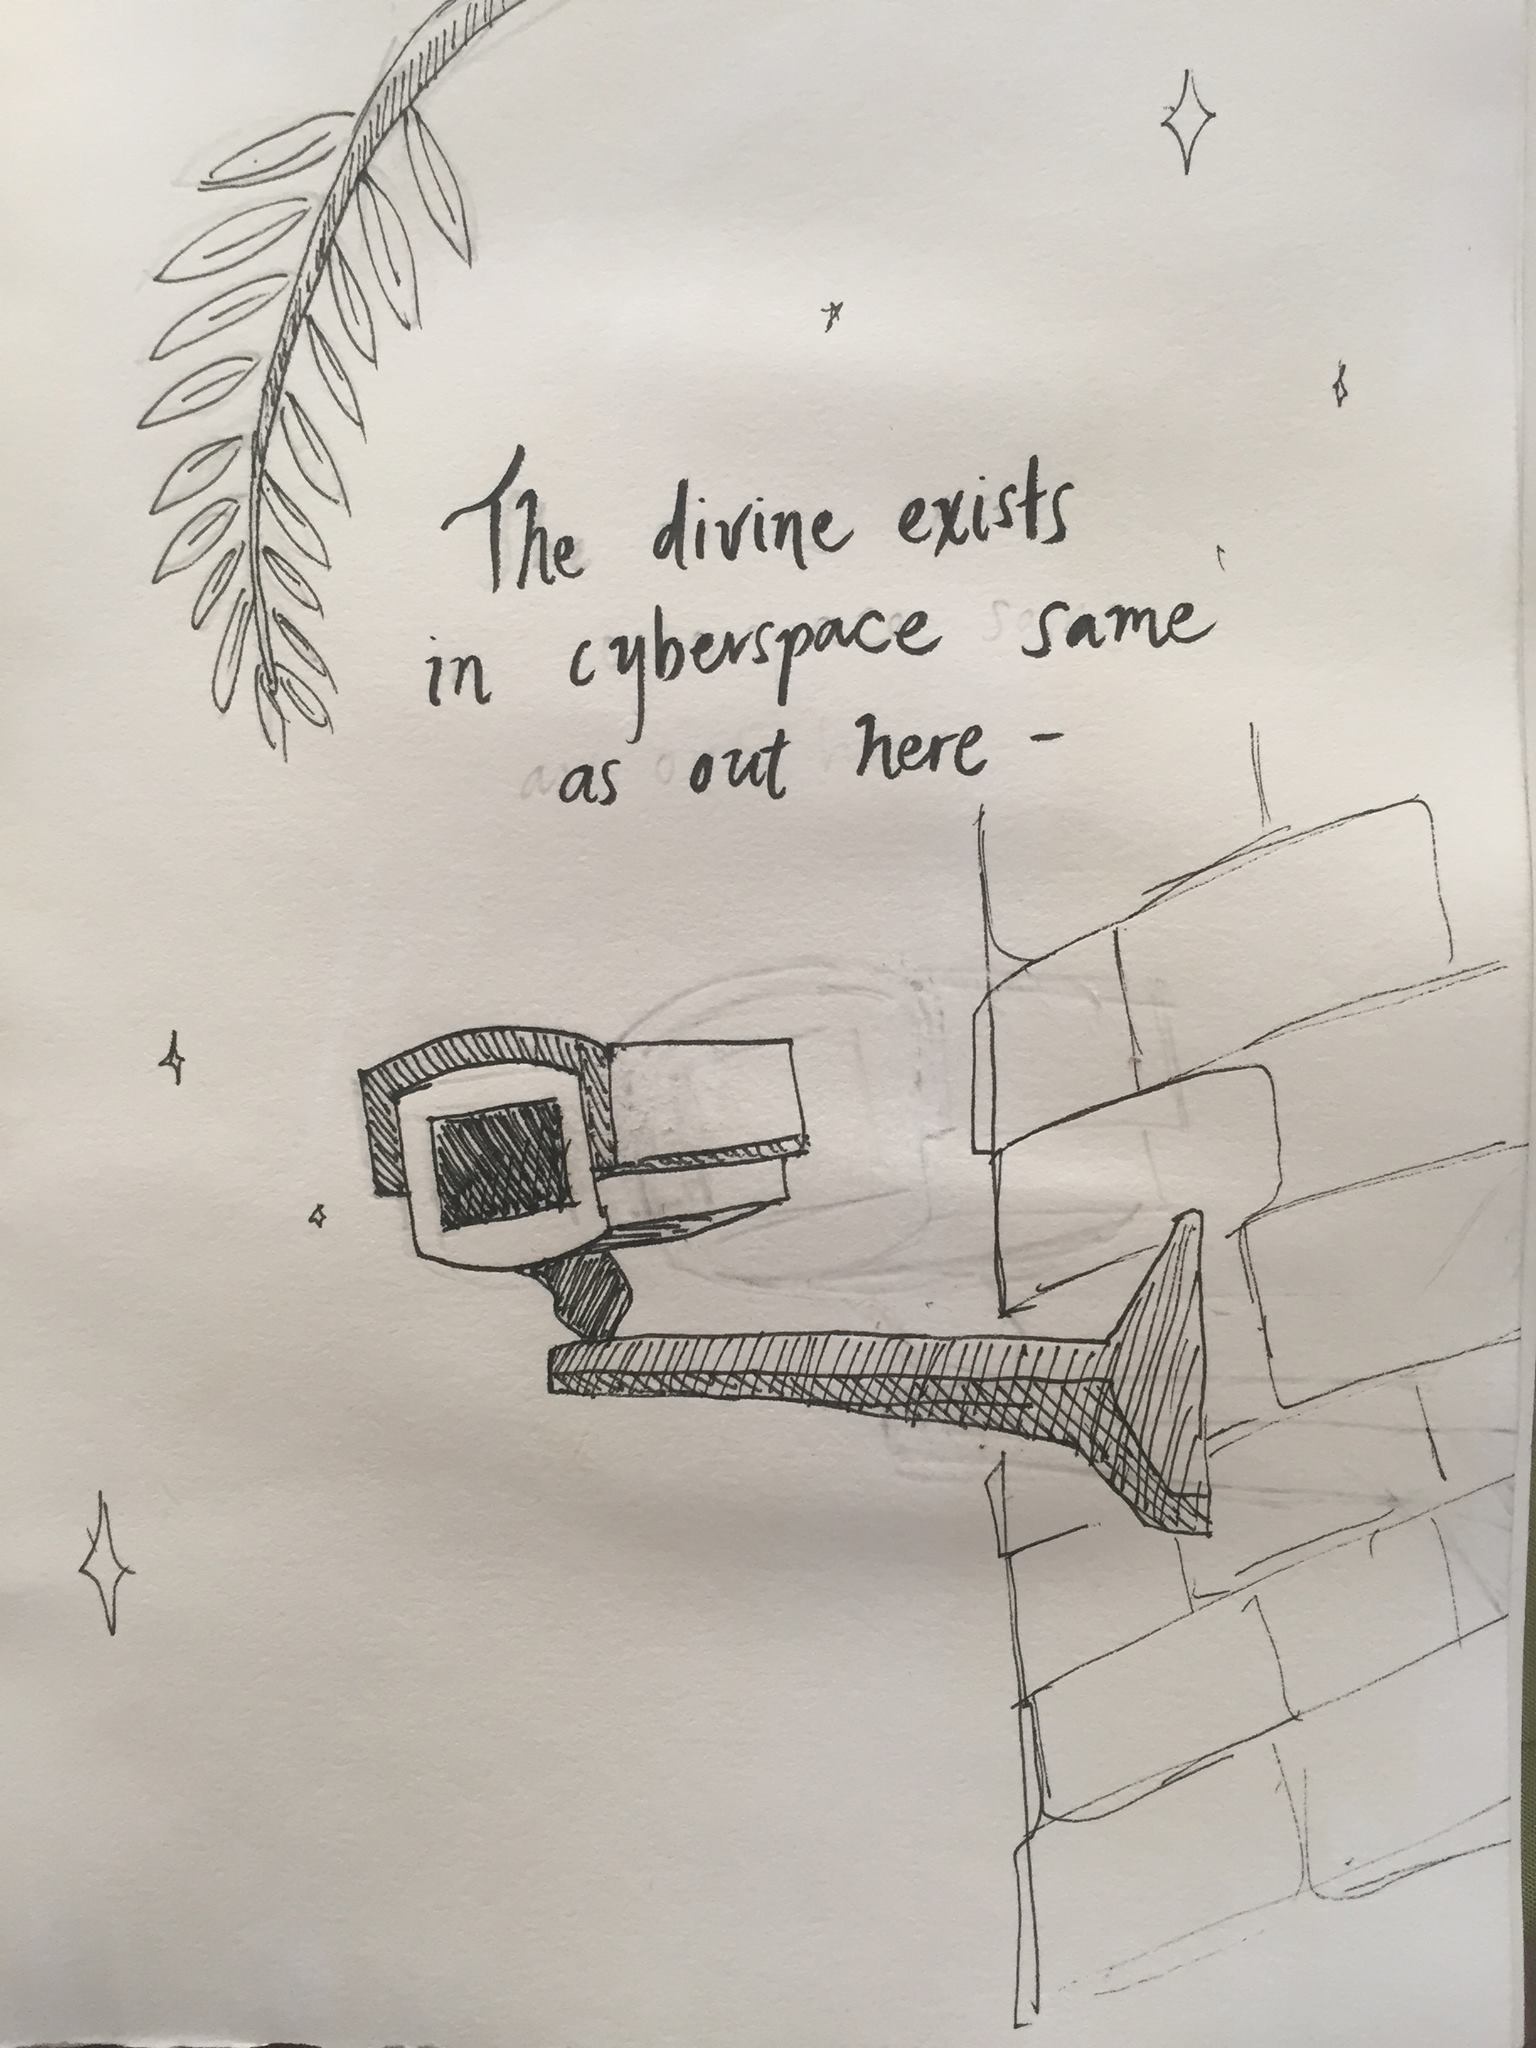 The divine exists
in cyberspace same
as out here -